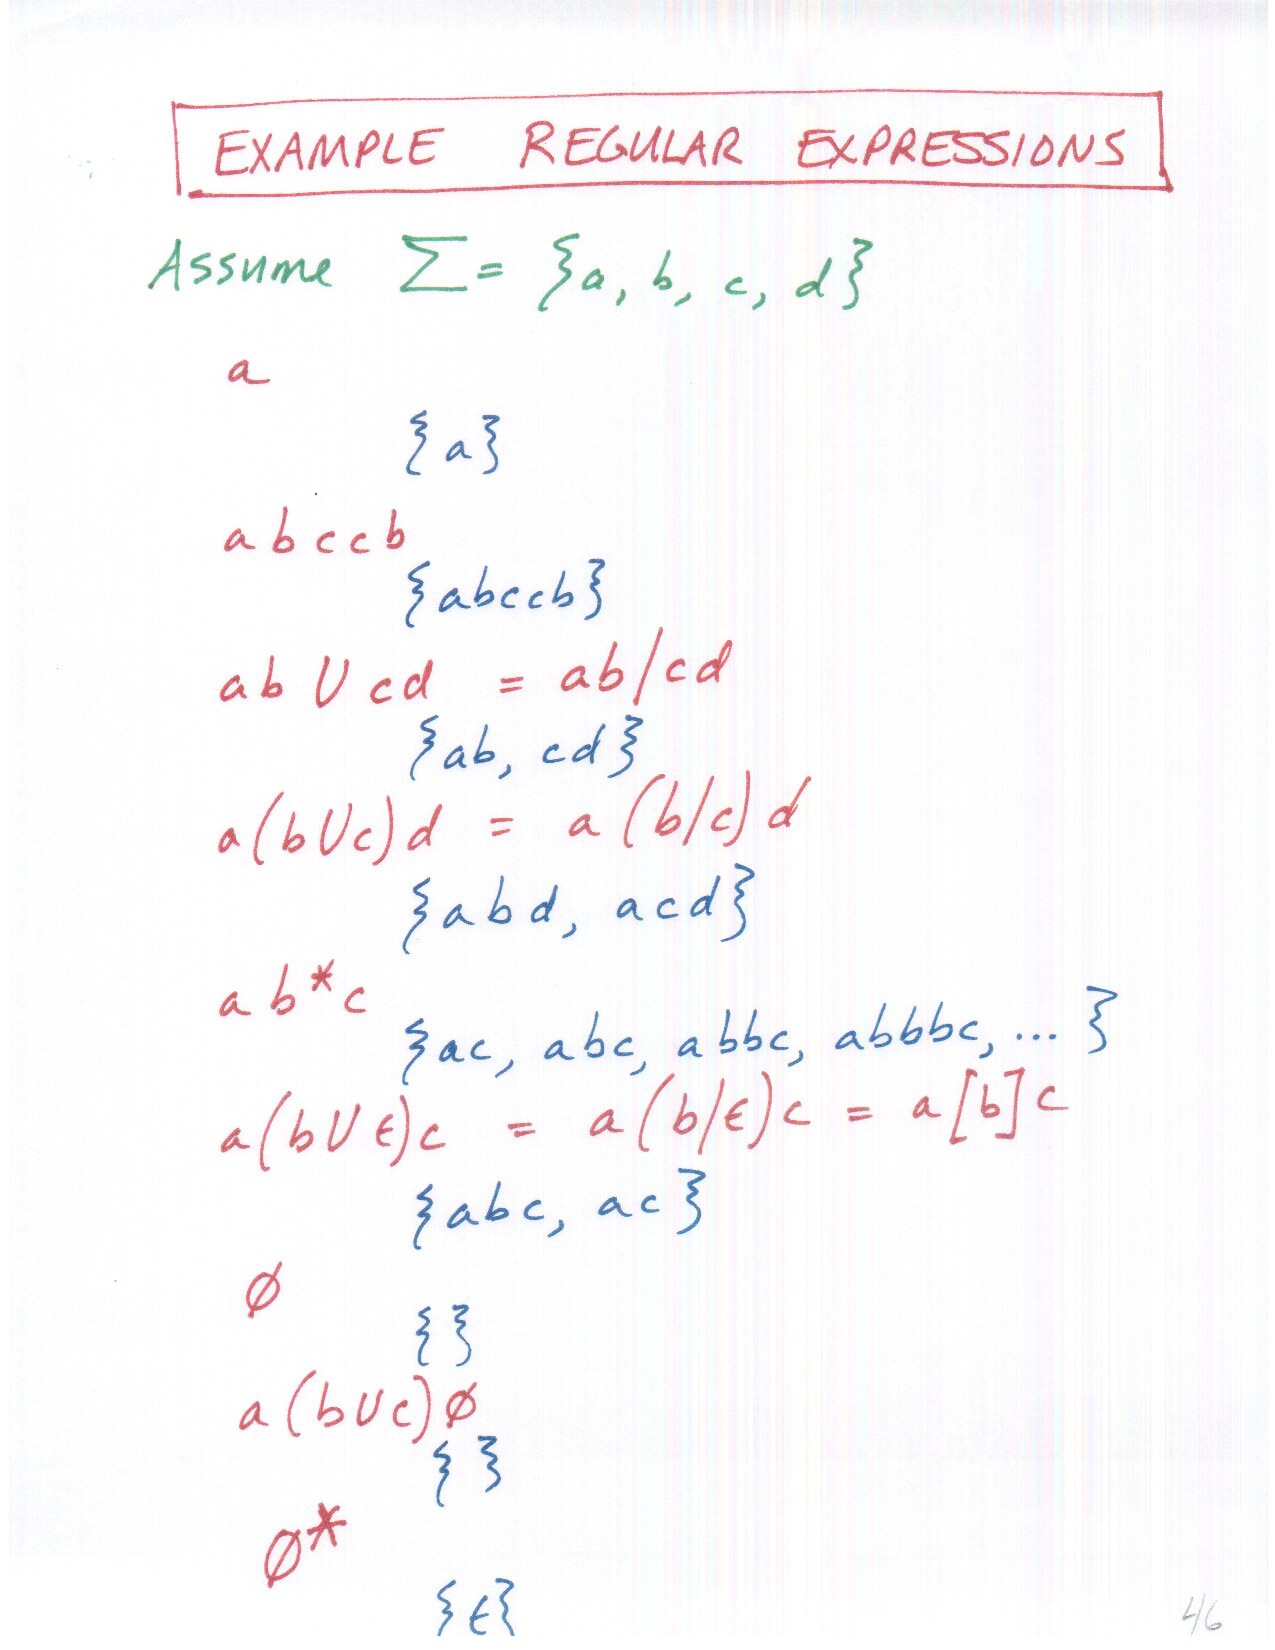 EXAMPLE REGULAR EXPRESSIONS
Assume Σ = {a, b, c, d}
a
{a}
abccb
{abccb}
ab ∪ cd = ab/cd
{ab, cd}
a(b∪c)d = a(b/c)d
{abd, acd}
ab*c
{ac, abc, abbc, abbbc, ... }
a(b∪ϵ)c = a(b/ϵ)c = a[b]c
{abc, ac}
∅
{ }
a(b∪c)∅
{ }
∅*
{ϵ}
4/6